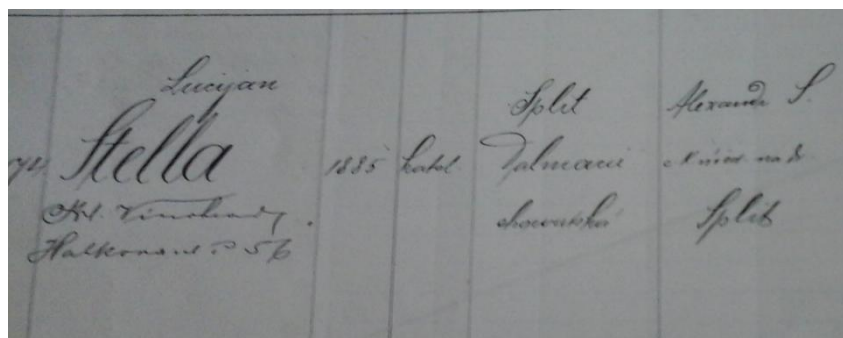 Lucijan
74. Stella
Král. Vinohrady.
Hálkova ul. č 56
1885
katol
Split
Dalmacie
chorvatská
Alexandr S.
Split